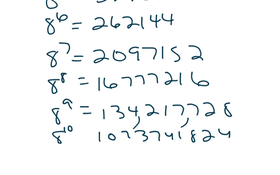 8⁶ = 262144
8⁷ = 2097152
8⁸ = 16777216
8⁹ = 134,217,728
8¹⁰ 1073741824